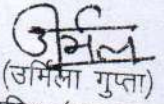 उर्मिला
(उर्मिला गुप्ता)